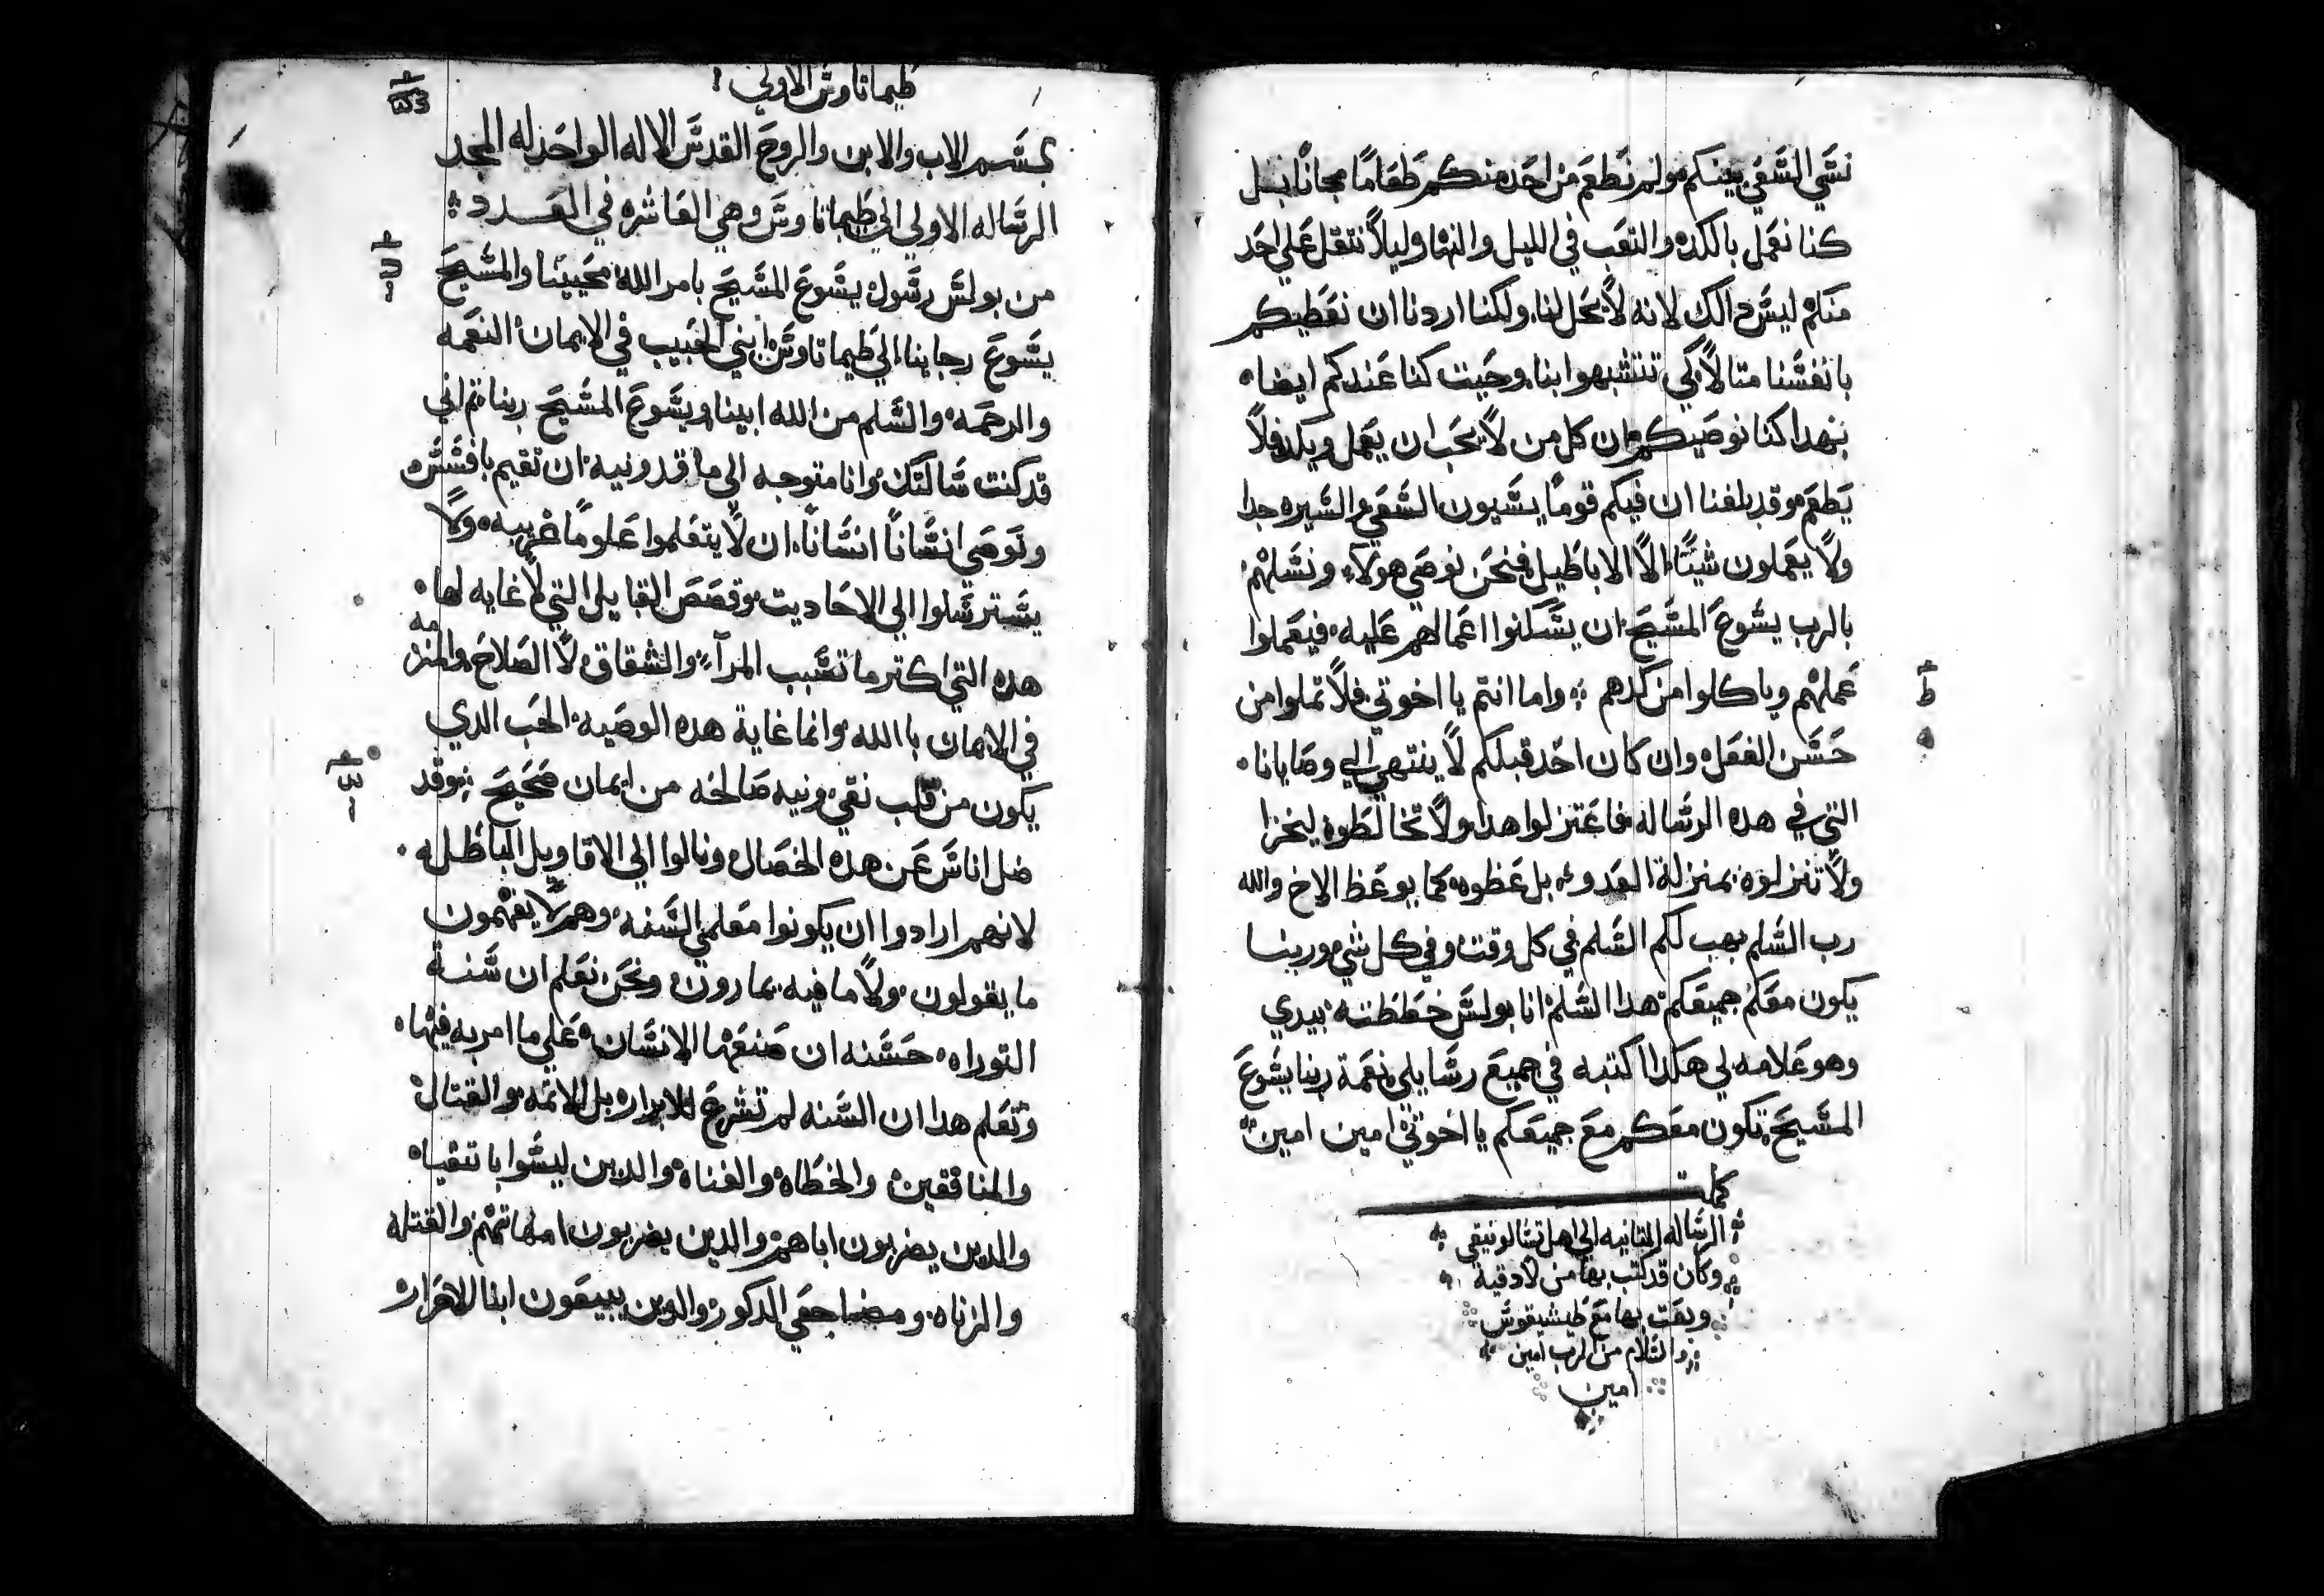 نسي السعي بينكم ولم نطعم من احد منكم طعاما مجانا بل
كنا نعمل بالكد والتعب في الليل والنهار ليلا نتقل علي احد
منكم ليس دالك لانه لا يحل لنا ولكنا اردنا ان نعطيكم
بانفسنا متالا كي تتشبهوا بنا وحيت كنا عندكم ايضا
بهدا كنا نوصيكم ان كل من لا يحب ان يعمل ويكد فلا
يطعم وقد بلغنا ان فيكم قوما يسيون السعي والسيره جدا
ولا يعملون شيئا الا الاباطيل فنحن نوصي هولاء ونسلهم
بالرب يسوع المسيح ان يسكنوا اعمالهم عليه فيعملوا
عملهم وياكلوا من كدهم واما انتم يا اخوتي فلا تملوا من
حسن الفعل وان كان احد قبلكم لا ينتهي الي وصايانا
التي في هده الرساله فاعتزلوا هدا ولا تخالطوه ليخزا
ولا تنزلوه بمنزلة العدو بل عظوه كما يوعظ الاخ والله
رب السلم يهب لكم السلم في كل وقت وفي كل شي وربنا
يكون معكم جميعكم هدا السلم انا بولس خططته بيدي
وهو علامه لي هكدا اكتبه في جميع رسايلي نعمة ربنا يسوع
المسيح تكون معكم مع جميعكم يا اخوتي امين امين
كملت
الرساله التانيه الي اهل تسالونيقي
وكان قد كتب بها من لادقية
وبعت بها مع طيشيقوس
والسلام من الرب امين
امين
طيماتاوس الاولي
بسم الاب والابن والروح القدس الاله الواحد له المجد
الرساله الاولي الي طيماتاوس وهي العاشره في العدد
من بولس رسول يسوع المسيح بامر الله محيينا والمسيح
يسوع رجاينا الي طيماتاوس ابني الحبيب في الايمان النعمه
والرحمه والسلم من الله ابينا ويسوع المسيح ربنا تم اني
قد كنت سالتك وانا متوجه الي ماقدونيه ان تقيم بافسس
وتوصي انسانا انسانا ان لا يتعلموا علوما غريبه ولا
يسترسلوا الي الاحاديت وقصص القبايل التي لا غايه لها
هده التي اكتر ما تسبب المرآء والشقاق لا الصلاح والمنزمه
في الايمان بالله وانما غاية هده الوصيه الحب الدي
يكون من قلب نقي ونيه صالحه من ايمان صحيح وقد
ضل اناس عن هده الخصال ومالوا الي الاقاويل الباطله
لانهم ارادوا ان يكونوا معلمي السنه وهم لا يفهمون
ما يقولون ولا ما فيه يمارون ونحن نعلم ان سنة
التوراه حسنه ان صنعها الانسان علي ما امر به فيها
وتعلم هدا ان السنه لم تشرع للابرار بل للاتمه والقتال
والمنافقين والخطاه والغناه والدين ليسوا باتقياه
والدين يضربون اباهم والدين يضربون امهاتهم والقتله
والزناه ومضاجعي الدكور والدين يبيعون ابنا الاحرار